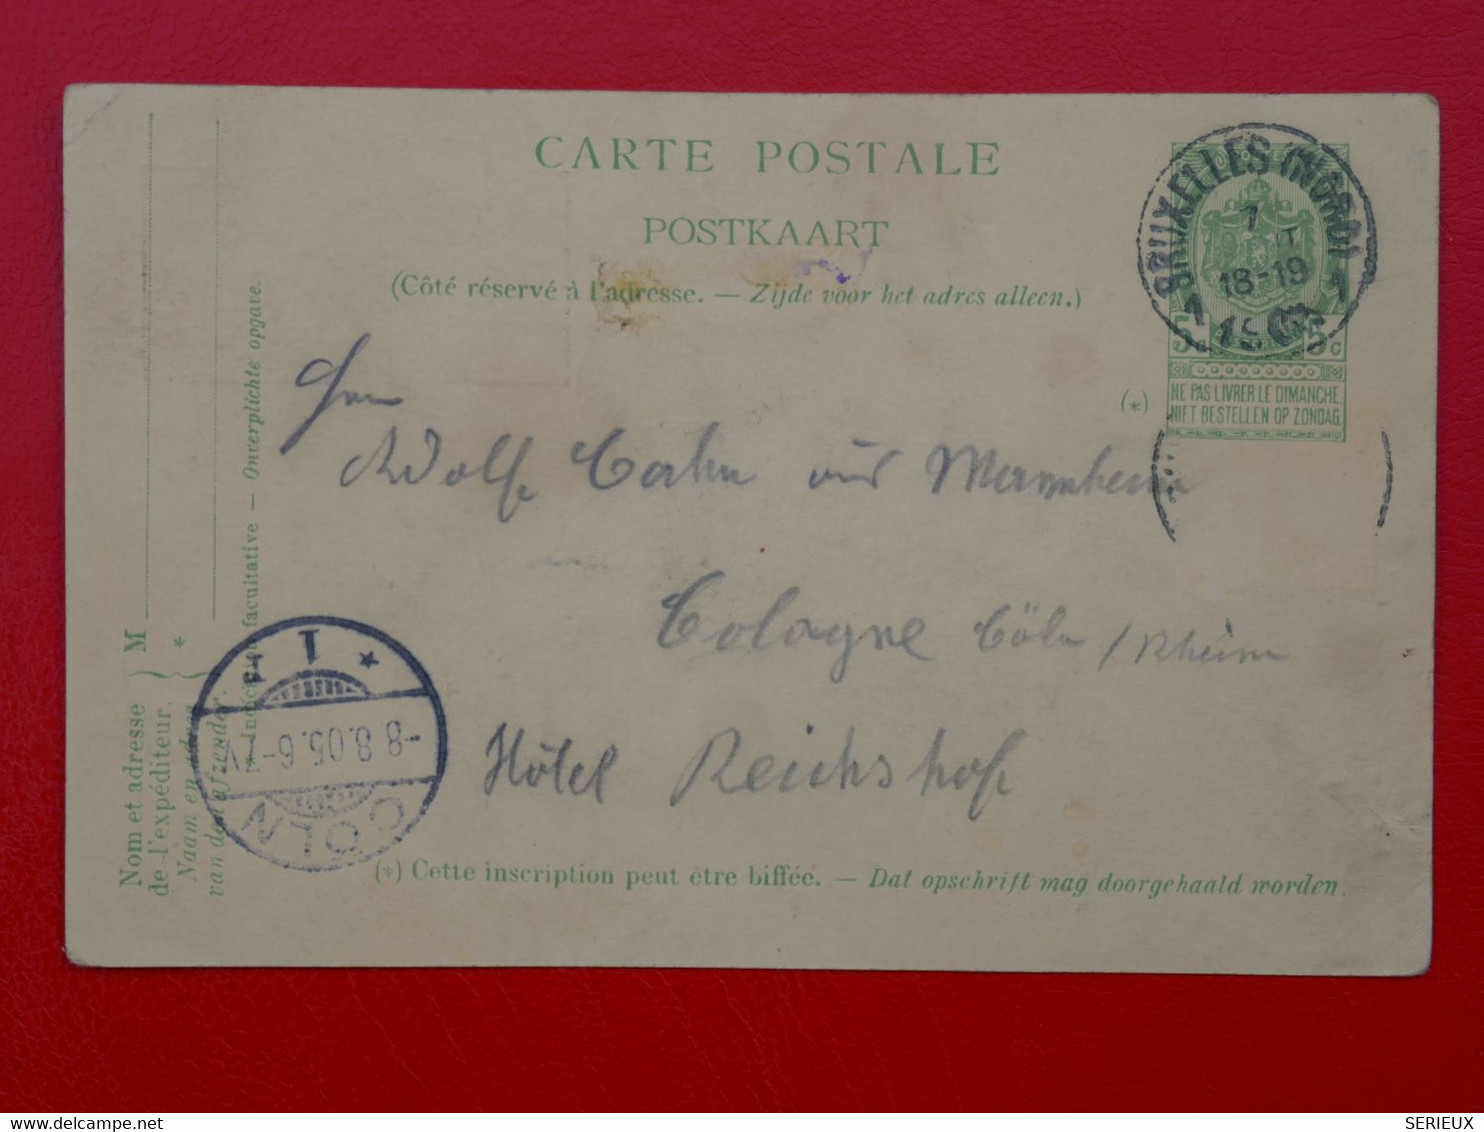 CARTE POSTALE
POSTKAART
(Côté réservé à l'adresse. — Zijde voor het adres alleen.)
BRUXELLES (NORD)
7
18-19
1 1
5c 5c
NE PAS LIVRER LE DIMANCHE.
NIET BESTELLEN OP ZONDAG.
(*)
Herrn
Adolf Cahn aus Mannheim
Cologne Cöln / Rhein
Hôtel Reichshof
(*) Cette inscription peut être biffée. — Dat opschrift mag doorgehaald worden.
M
*
Nom et adresse
de l'expéditeur.
Naam en adres
van den afzender.
* Indication facultative — Onverplichte opgave.
CÖLN
-8.8.05.6-7V
* 1
SERIEUX
delcampe.net